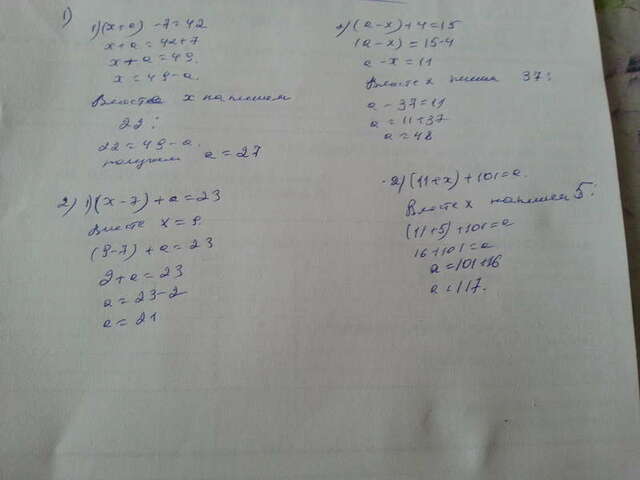 1)
1)(x+a) -7=42
x+a=42+7
x+a=49.
x=49-a.
Вместо x напишем
22:
22=49-a.
получаем a=27
2)(a-x)+4=15
(a-x)=15-4
a-x=11
Вместо x пишем 37:
a-37=11
a=11+37
a=48
2) 1)(x-7)+a=23
Вместо x=9.
(9-7)+a=23
2+a=23
a=23-2
a=21
2)(11+x)+101=a.
Вместо x напишем 5:
(11+5)+101=a
16+101=a
a=101+16
a=117.